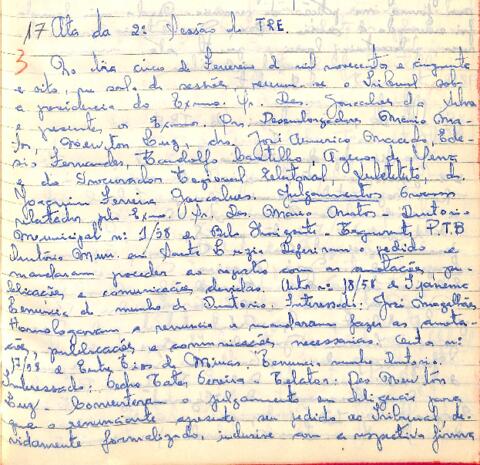 17 Ata da 2ª Sessão do TRE.
3
No dia cinco de Fevereiro de mil novecentos e cinquenta
e oito, na sala de sessões, reuniu-se o Tribunal sob
a presidencia do Exmo. Sr. Des. Gonçalves da Silva
e presentes os Exmos. Srs. Desembargadores Mario Ma-
tos, Newton Luz, drs. José Americo Macedo, Ede-
sio Fernandes, Candolfo Castilho,
e do Procurador Regional Eleitoral, Substituto, dr.
Joaquim Ferreira Gonçalves. Julgamentos Processos
relatados pelo Exmo. Sr. Des. Mario Matos - Diretorio
Municipal nº 1/58 de Belo Horizonte - Requerente, P.T.B
Diretório Mun. em Deferiram o pedido e
mandaram proceder ao registro com as anotações, pu-
blicações e comunicações devidas. Auto nº 18/58 de Ipanema
Renúncia de membro de Diretorio. Interessado: José Magalhães
Homologaram a renuncia e mandaram fazer as anota-
ções, publicações e comunicações necessarias. Autos nº
17/58 de Entre Rios de Minas. Renuncia membro Diretorio.
Interessado: Pedro Tates Pereira - Relator: Des Newton
Luz - Converteram o julgamento em diligencia para
que o renunciante apresente seu pedido ao Tribunal de-
vidamente formalizado, inclusive com a respectiva firma